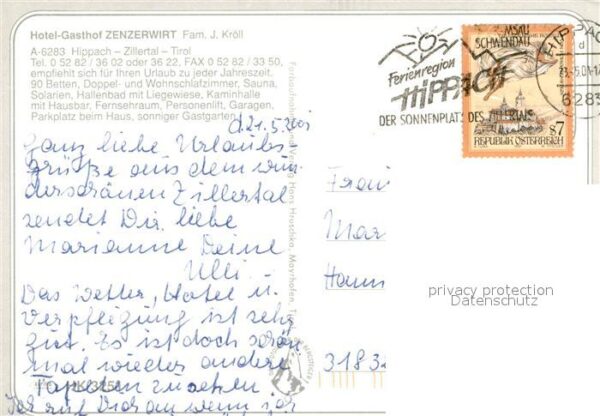 Hotel-Gasthof ZENZERWIRT Fam. J. Kröll
A-6283 Hippach – Zillertal – Tirol
Tel. 0 52 82 / 36 02 oder 36 22, FAX 0 52 82 / 33 50,
empfiehlt sich für Ihren Urlaub zu jeder Jahreszeit.
90 Betten, Doppel- und Wohnschlafzimmer, Sauna,
Solarien, Hallenbad mit Liegewiese, Kaminhalle
mit Hausbar, Fernsehraum, Personenlift, Garagen,
Parkplatz beim Haus, sonniger Gastgarten!
d. 21.5.2001
Ganz liebe Urlaubs
grüße aus dem wun
derschönen Zillertal
sendet Dir, liebe
Marianne Deine
Ulli.
Das Wetter, Hotel u.
Verpflegung ist sehr
gut. Es ist doch schön
mal wieder andere
Tapeten zu sehen
auf Dich an wenn ich
SCHWENDAU
Ferienregion
HIPPACH
DER SONNENPLATZ DES ZILLERTALS
HIPPACH
6283
7
REPUBLIK ÖSTERREICH
Frau
Mar
Hann
3183
privacy protection
Datenschutz